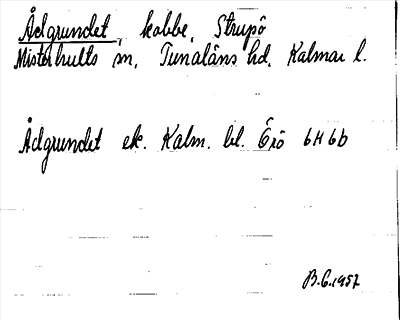 Ådgrundet, kobbe, Strupö
Misterhults sn, Tunaläns hd. Kalmar l.
Ådgrundet ek. Kalm. bl. Örö 6H6b
B.G. 1957